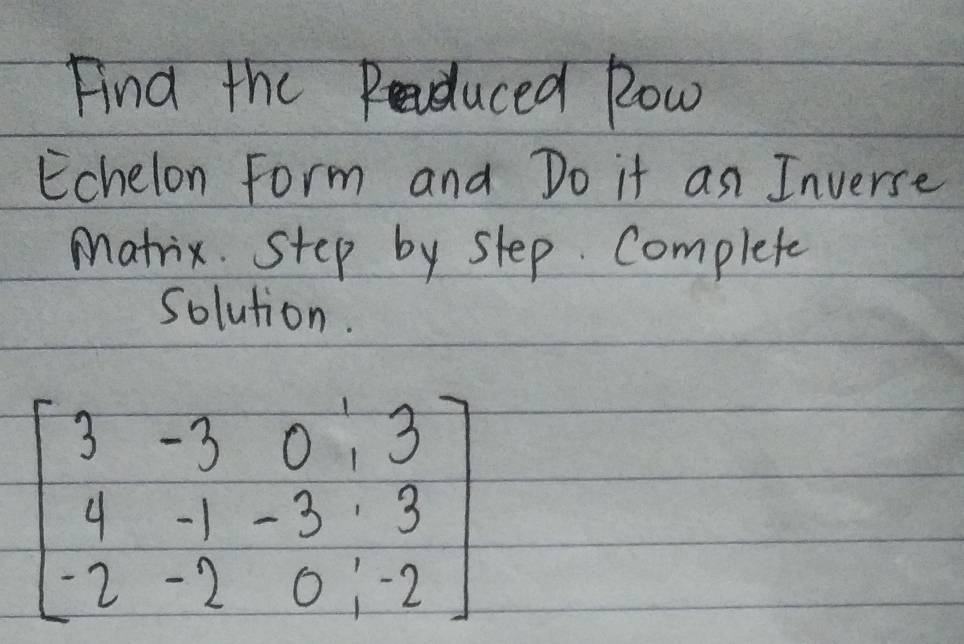 Find the Reduced Row
Echelon Form and Do it as Inverse
Matrix. Step by step. Complete
Solution.
3 -3 0 ¦ 3
4 -1 -3 ¦ 3
-2 -2 0 ¦ -2